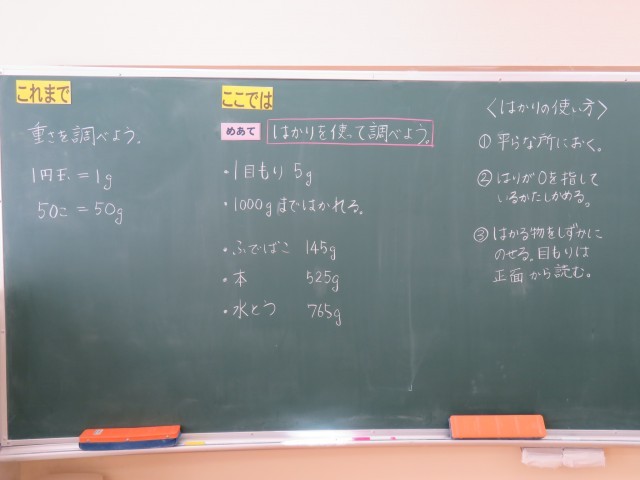 これまで
重さを調べよう。
1円玉=1g
50こ=50g
ここでは
めあて はかりを使って調べよう。
・1目もり 5g
・1000gまではかれる。
・ふでばこ 145g
・本 525g
・水とう 765g
〈はかりの使い方〉
①平らな所におく。
②はりが0を指して
いるかたしかめる。
③はかる物をしずかに
のせる。目もりは
正面から読む。